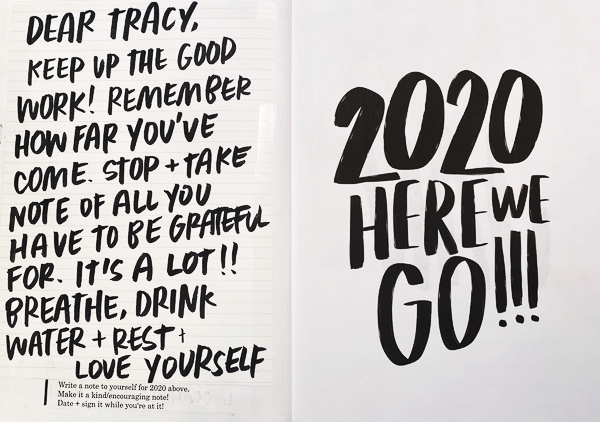 DEAR TRACY,
KEEP UP THE GOOD
WORK! REMEMBER
HOW FAR YOU'VE
COME. STOP + TAKE
NOTE OF ALL YOU
HAVE TO BE GRATEFUL
FOR. IT'S A LOT!!
BREATHE, DRINK
WATER + REST +
LOVE YOURSELF
Write a note to yourself for 2020 above.
Make it a kind/encouraging note!
Date + sign it while you're at it!
2020
HERE WE
GO!!!